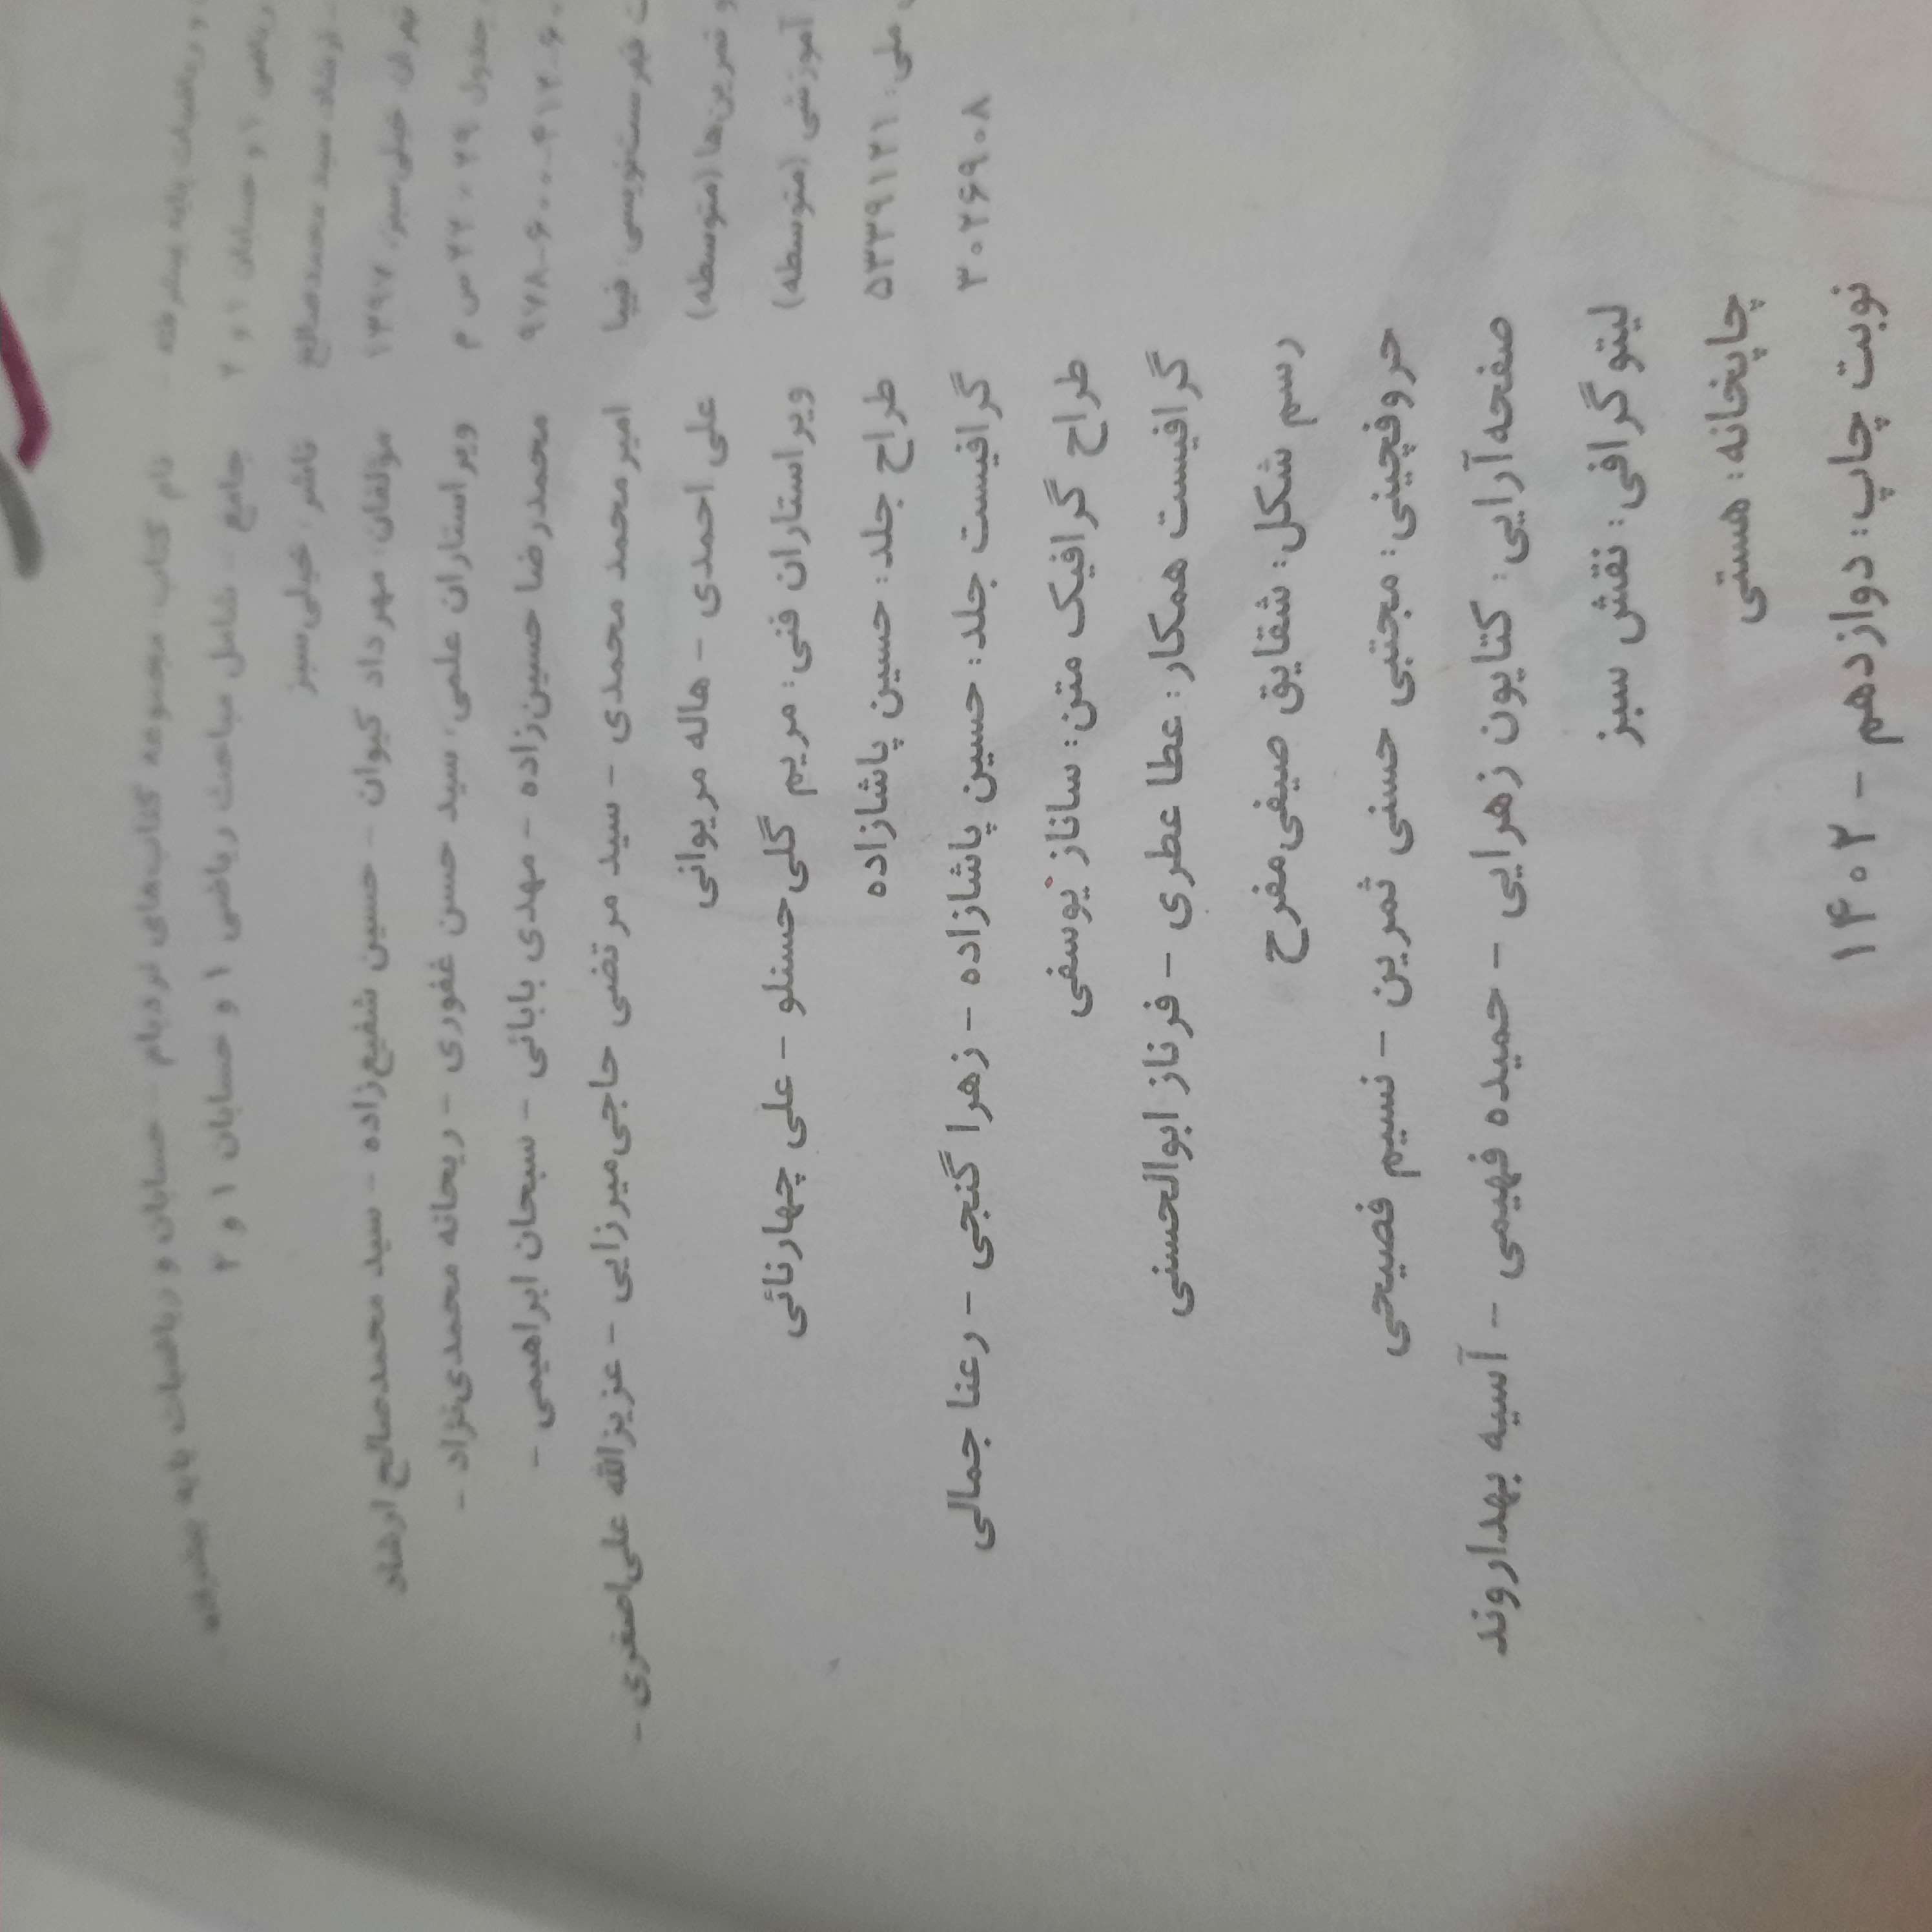 نام کتاب: مجموعه کتاب‌های نردبام - حسابان و ریاضیات پایه پیشرفته
جامع - شامل مباحث ریاضی ۱ و حسابان ۱ و ۲
ناشر: خیلی‌سبز
مؤلفان: مهرداد کیوان - حسین شفیع‌زاده - سید محمدصالح ارشاد
ویراستاران علمی: سید حسن غفوری - ریحانه محمدی‌نژاد -
محمدرضا حسین‌زاده - مهدی بابائی - سبحان ابراهیمی -
امیرمحمد محمدی - سید مرتضی حاجی‌میرزایی - عزیزالله علی‌اصغری -
علی احمدی - هاله مریوانی
ویراستاران فنی: مریم گلی‌حسنلو - علی چهارنائی
طراح جلد: حسین پاشازاده
گرافیست جلد: حسین پاشازاده - زهرا گنجی - رعنا جمالی
طراح گرافیک متن: ساناز یوسفی
گرافیست همکار: عطا عطری - فرناز ابوالحسنی
رسم شکل: شقایق صیفی‌مفرح
حروفچینی: مجتبی حسنی ثمرین - نسیم فصیحی
صفحه‌آرایی: کتایون زهرایی - حمیده فهیمی - آسیه بهداروند
لیتوگرافی: نقش سبز
چاپخانه: هستی
نوبت چاپ: دوازدهم - ۱۴۰۲
و ریاضیات پایه پیشرفته
ریاضی ۱ و حسابان ۱ و ۲
سید محمدصالح
تهران: خیلی‌سبز، ۱۳۹۷
جدول ۲۹،۲۲ س م
۹۷۸-۶۰۰-۴۱۲-۶
فهرست‌نویسی: فیپا
و تمرین‌ها (متوسطه)
آموزشی (متوسطه)
ملی: ۵۳۳۹۱۲۱
۳۰۲۶۹۰۸